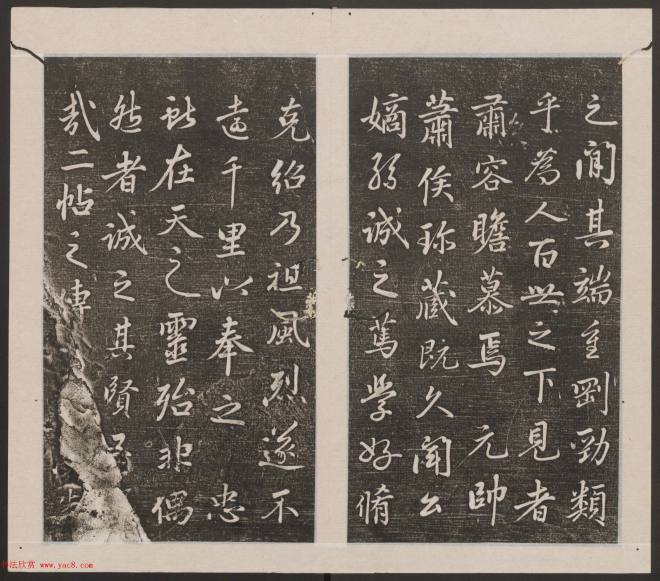 之間其端重剛勁類
乎為人百世之下見者
肅容瞻慕焉元帥
蕭侯珎藏既久聞公
嫡孫誠之篤學好脩
克紹乃祖風烈遂不
遠千里以奉之忠
獻在天之靈殆非偶
然者誠之其賢矣
哉二帖之傳
法欣赏 www.yac8.com